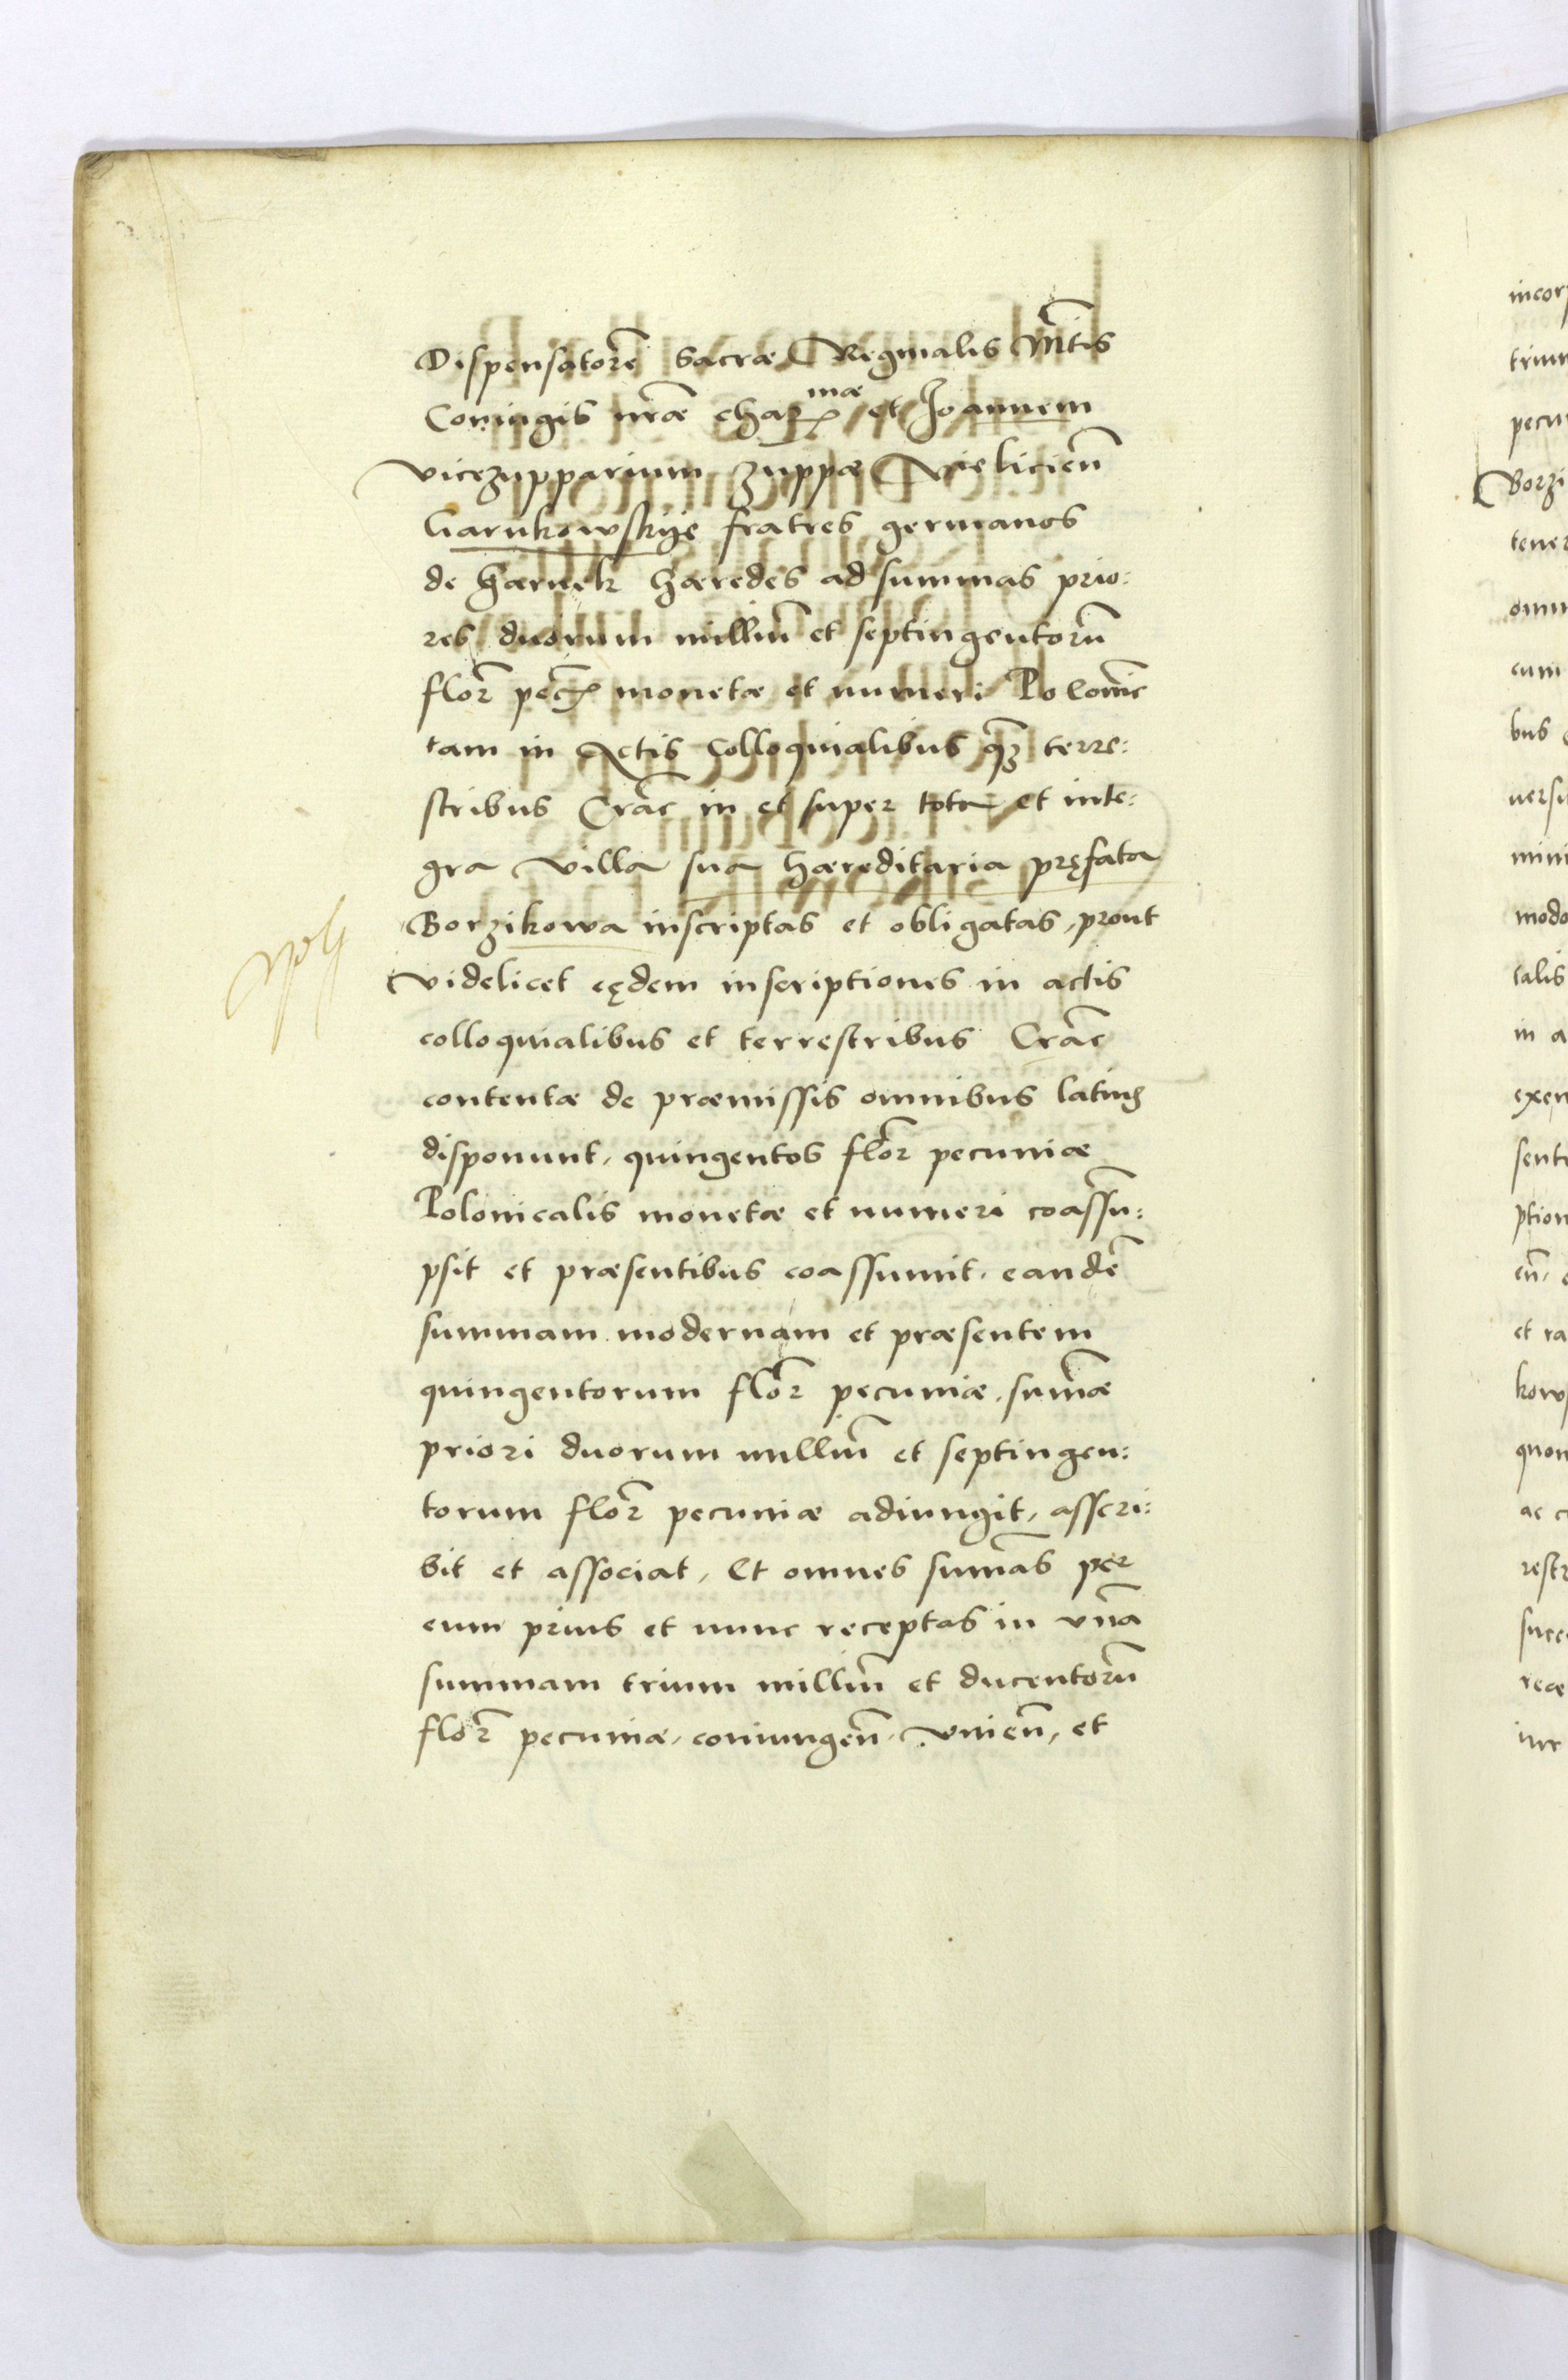 Dispensatorē Sacræ Reginalis Mtis
Coniugis nr̄æ char mæ et Joannem
vicezupparium zuppæ Vieliciēn
Garnkowskije fratres germanos
de Garnek hæredes ad summas prio:
res duorum milliū et septingentorū
flor̄ pec monetæ et numeri Polonic
tam in Actis colloquialibus q̄ terre:
stribus Crac̄ in et super tota et inte:
gra villa sua hæreditaria pręfata
Borzikowa inscriptas et obligatas, prout
videlicet eędem inscriptiones in actis
colloquialibus et terrestribus Crac̄
contentæ de præmissis omnibus latius
disponunt, quingentos flor̄ pecuniæ
Polonicalis monetæ et numeri coassū:
psit et præsentibus coassumit, eandē
summam modernam et præsentem
quingentorum flor̄ pecuniæ, sum̄æ
priori duorum milliū et septingen:
torum flor̄ pecuniæ adiungit, asscri:
bit et associat, Et omnes sum̄as per
eum prius et nunc receptas in vnā
summam trium milliū et ducentorū
flor̄ pecuniæ, coniungēn, vniēn, et
incor
trium
pecu
Borzi
tener
omn
cum
bus
uersu
mini
modo
talis
in a
exem
sent
ption
eñ,
et ra
kows
quon
ac c
restr
succ
recæ
iur